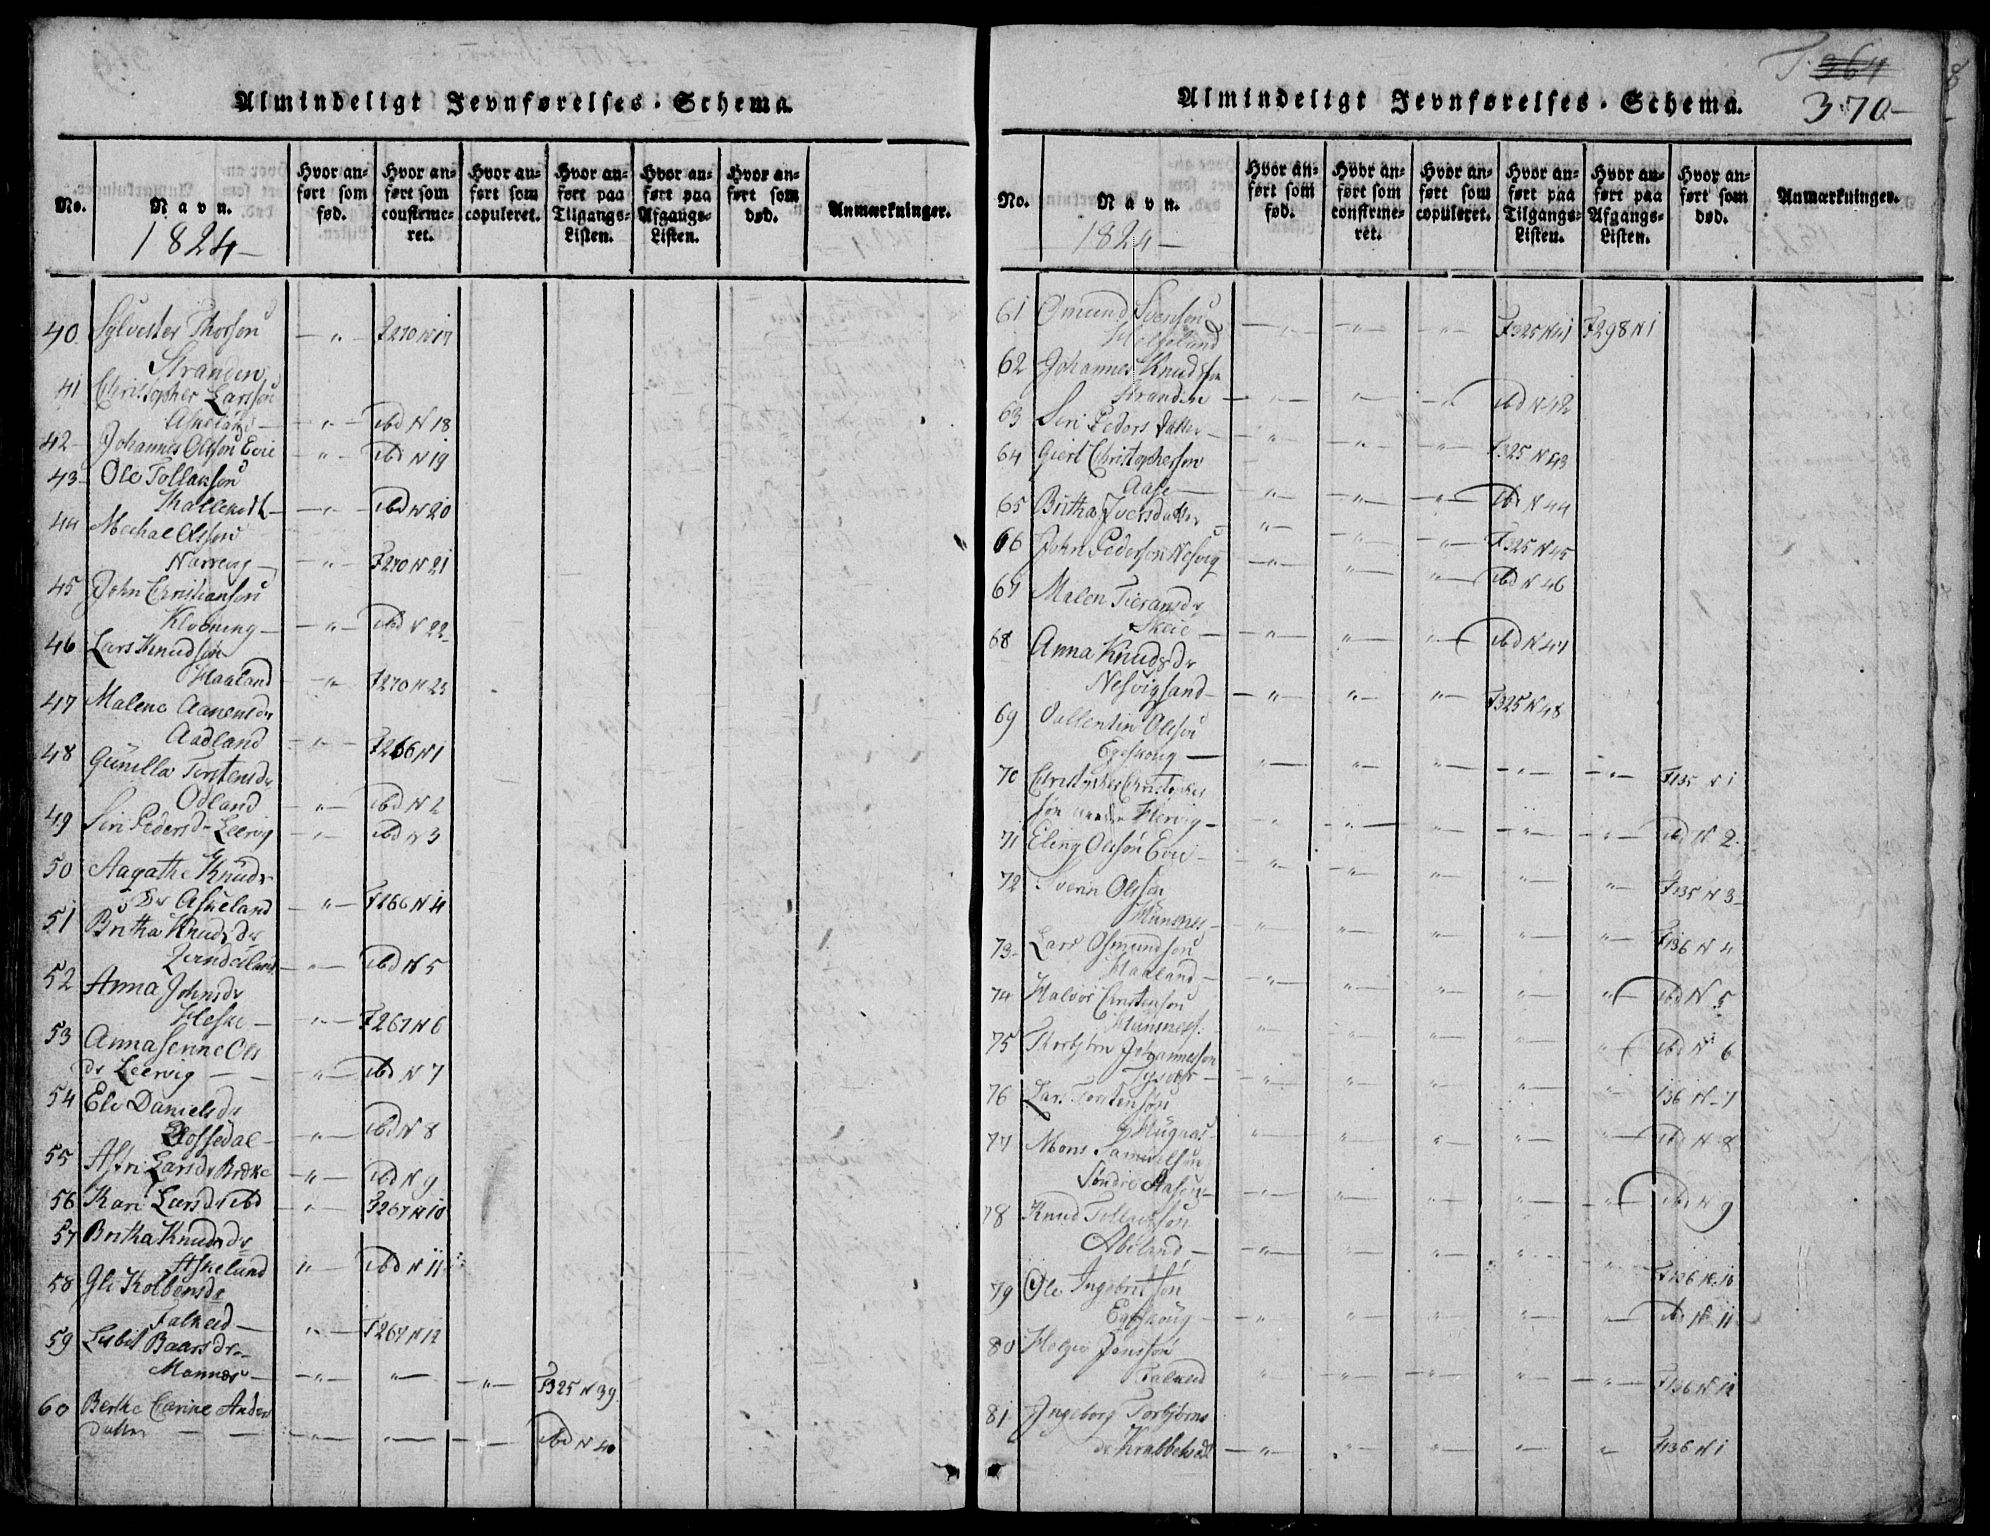 Almindeligt Jevnførelses-Schema.
No.
Navn.
1824
Hvor anført som fød.
Hvor anført som confirmeret.
Hvor anført som copuleret.
Hvor anført paa Tilgangs-Listen.
Hvor anført paa Afgangs-Listen.
Hvor anført som død.
Anmærkninger.
40 Sylvester Thorsøn
Stranden — " — F270 N 17
41 Christopher Larssøn
Askeland — " — ibd N 18
42 Johannes Olssøn Evie — " — ibd N 19
43 Ole Tollaksøn
— " — ibd N 20
44 Mechael Olssøn
— " — F270 N 21
45 John Christiansøn
Klovning — " — ibd N 22
46 Lars Knudsøn
Haaland — " — F270 N 23
47 Malene Aanensdr
Aadland — " — F266 N 1
48 Gunilla Torstensdr
Odland — " — ibd N 2
49 Siri Pedersdr Leervig — " — ibd N 3
50 Aagathe Knuds
Dr Askeland — " — F266 N 4
51 Britha Knudsdr
— " — ibd N 5
52 Anna Johnsdr
Heske — " — F267 N 6
53 Anna Serine Ols
dr Leervig — " — ibd N 7
54 Eli Danielsdr
— " — ibd N 8
55 Astri Larsdr Brekke — " — ibd N 9
56 Kari Larsdr ibd — " — F267 N 10
57 Britha Knudsdr
Askeland " — ibd N 11
58 Gli Kolbensdr
Falkeid — " — F267 N 12
59 Lisbet Baarsdr
— " — " — " — F325 N 39
60 Berthe Carine Anders
datter — " — " — " — ibd N 40
Almindeligt Jevnførelses-Schema.
T. 364
370
No.
Navn.
1824
Hvor anført som fød.
Hvor anført som confirmeret.
Hvor anført som copuleret.
Hvor anført paa Tilgangs-Listen.
Hvor anført paa Afgangs-Listen.
Hvor anført som død.
Anmærkninger.
61 Omund Svensøn
Helgeland — " — " — " F325 N 41 F298 N 1
62 Johannes Knudsøn
Stranden — " — " — " — ibd N 42
63 Siri Peders datter — " — " — " F325 N 43
64 Giert Christophersøn
Aase — " — " — " — ibd N 44
65 Britha Iversdatter — " — " — " F325 N 45
66 John Pedersøn Nesvig — " — " — " ibd N 46
67 Malen
Skeie — " — " — " — ibd N 47
68 Anna Knudsdr
Nesvigsand — " — " — " F325 N 48
69 Vallentin Olssøn
Egeskoug — " — " — " — " — " — F135 N 1
70 Christopher Christopher
søn — " — " — " — " — " — ibd N 2
71 Eling Olssøn Evie — " — " — " — " — " F135 N 3
72 Svenn Olssøn
— " — " — " — " — " F136 N 4
73 Lars Osmundsøn
Haaland — " — " — " — " — " ibd N 5
74 Halvor Christensøn
— " — " — " — " — " ibd N 6
75 Torbjørn Johannessøn
— " — " — " — " — " 136 N 7
76 Lars Torstensøn
— " — " — " — " — " ibd N 8
77 Mons Samuelsøn
Søndre — " — " — " — " — " ibd N 9
78 Knud Tollaksøn
— " — " — " — " — " F136 N 10
79 Ole Ingebretsøn
Egeskoug — " — " — " — " — " ibd N 11
80 Helge Jonssøn
Falkeid " — " — " — " — " — F136 N 12
81 Ingeborg Torbjørns
dr — " — " — " — " — " F136 N 1